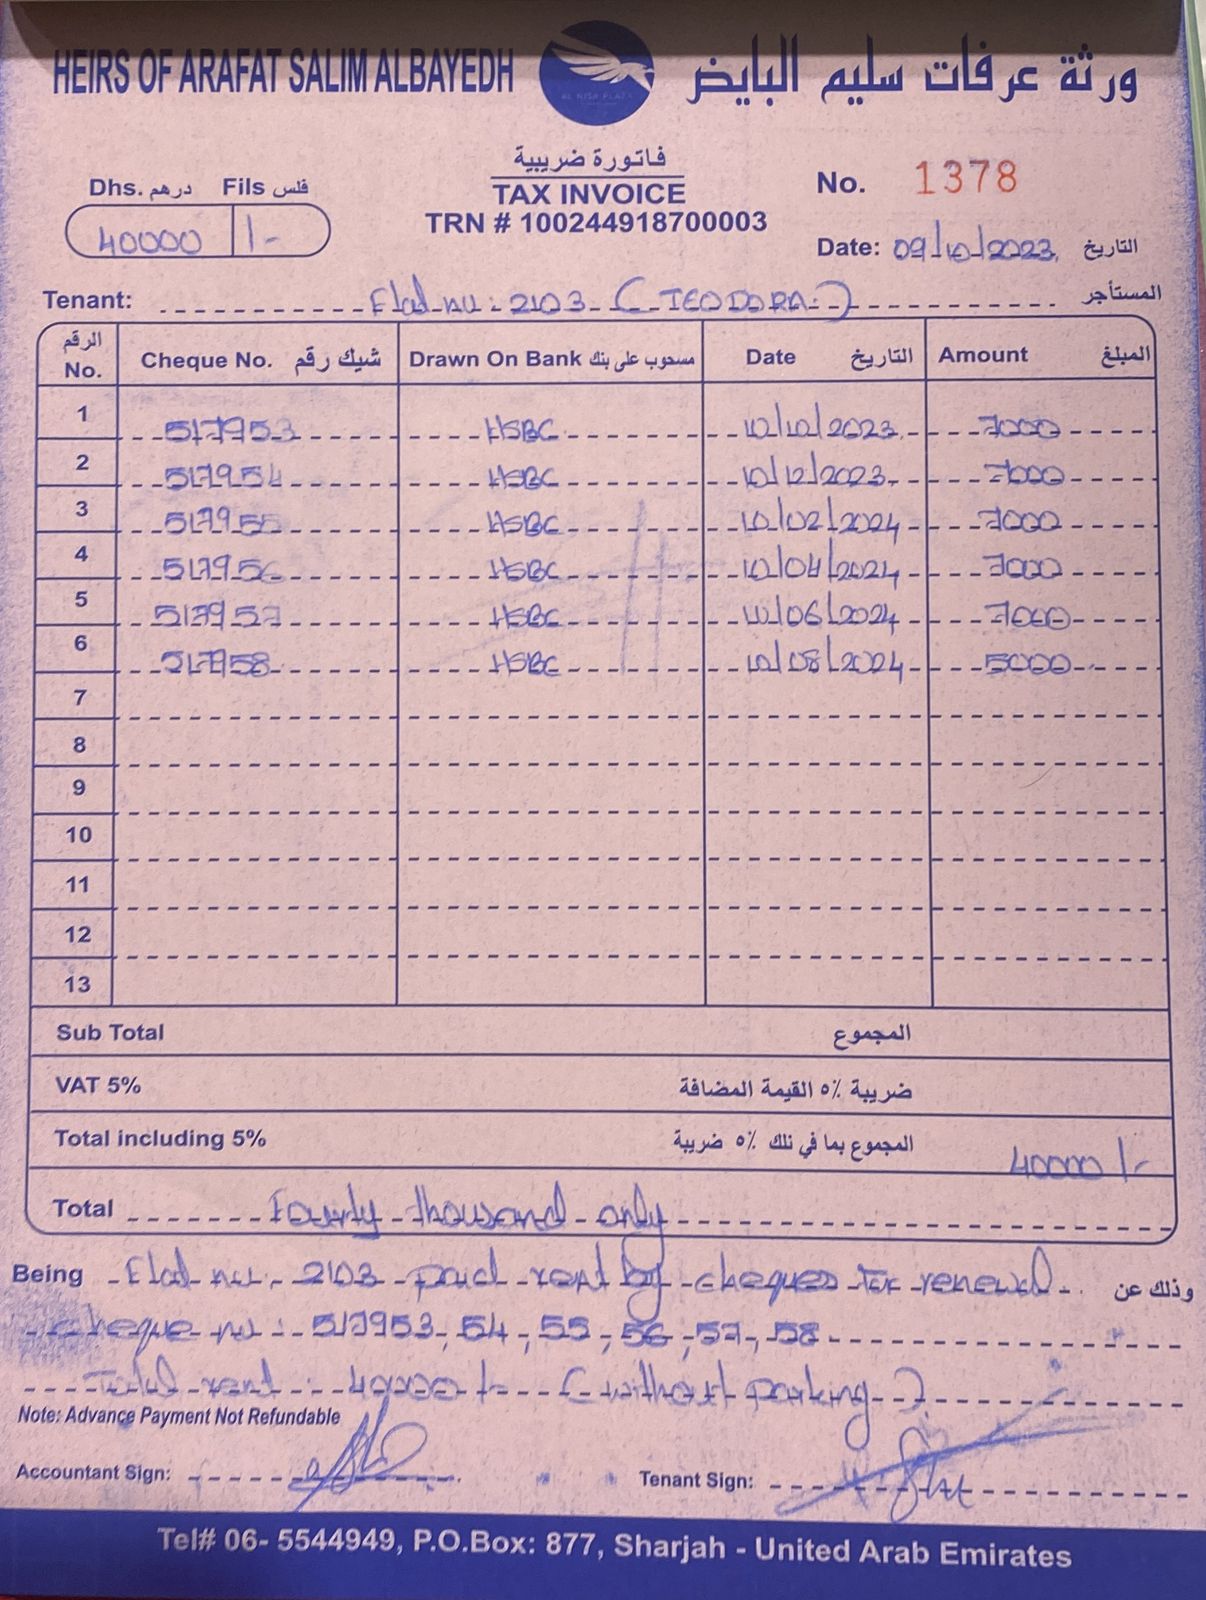 HEIRS OF ARAFAT SALIM ALBAYEDH
AL NISR PLAZA
ورثة عرفات سليم البايض
فاتورة ضريبية
TAX INVOICE
TRN # 100244918700003
Dhs. درهم Fils فلس
40000 /-
No. 1378
Date: 09/10/2023 التاريخ
Tenant: Flat no: 2103 (TEODORA) المستأجر
الرقم No. Cheque No. شيك رقم Drawn On Bank مسحوب على بنك Date التاريخ Amount المبلغ
1 517953 HSBC 10/10/2023 7000
2 517954 HSBC 10/12/2023 7000
3 517955 HSBC 10/02/2024 7000
4 517956 HSBC 10/04/2024 7000
5 517957 HSBC 10/06/2024 7000
6 517958 HSBC 10/08/2024 5000
7
8
9
10
11
12
13
Sub Total المجموع
VAT 5% ضريبة ٥٪ القيمة المضافة
Total including 5% المجموع بما في ذلك ٥٪ ضريبة 40000/-
Total Fourty thousand only
Being Flat no. 2103 paid rent by cheques for renewal. وذلك عن
cheque no: 517953, 54, 55, 56, 57, 58
Total rent: 40000/- (without parking)
Note: Advance Payment Not Refundable
Accountant Sign: Tenant Sign:
Tel# 06- 5544949, P.O.Box: 877, Sharjah - United Arab Emirates